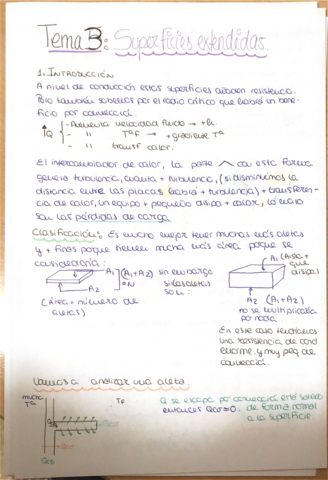 Tema 3: Superficies extendidas.
1. INTRODUCCIÓN
A nivel de conducción estas superficies añaden resistencia.
Pero también sabemos por el radio crítico que habrá un bene-
ficio por convección.
↑Q { - Aumenta velocidad fluido → ↑h.
- " Tª F → + gradiente Tª
- " transf calor.
El intercambiador de calor, la parte con esta forma
genera turbulencia, cuanta + turbulencia, (si disminuimos la
distancia entre las placas habrá + turbulencia) + transferen-
cia de calor, un equipo + pequeño disipa + calor, lo malo
son las pérdidas de carga.
Clasificación: Es mucho mejor tener muchas más aletas
y + finas porque tienen mucha más área porque se
consideraría:
A1 } (A1+A2) · N
A2
(área × número de
aletas)
sin embargo
si las aletas
son:
A1 (Área +
que
disipa)
A2 (A1+A2)
no se multiplicaría
por nada
En este caso tendríamos
una resistencia de cond
enorme, y muy peq de
convección.
Vamos a analizar una aleta.
mucha
Tª
TF
Qcv
Qcv
Qcd
Q se escapa por convección está saliendo
entonces Qcv=0. de forma normal
a la superficie.